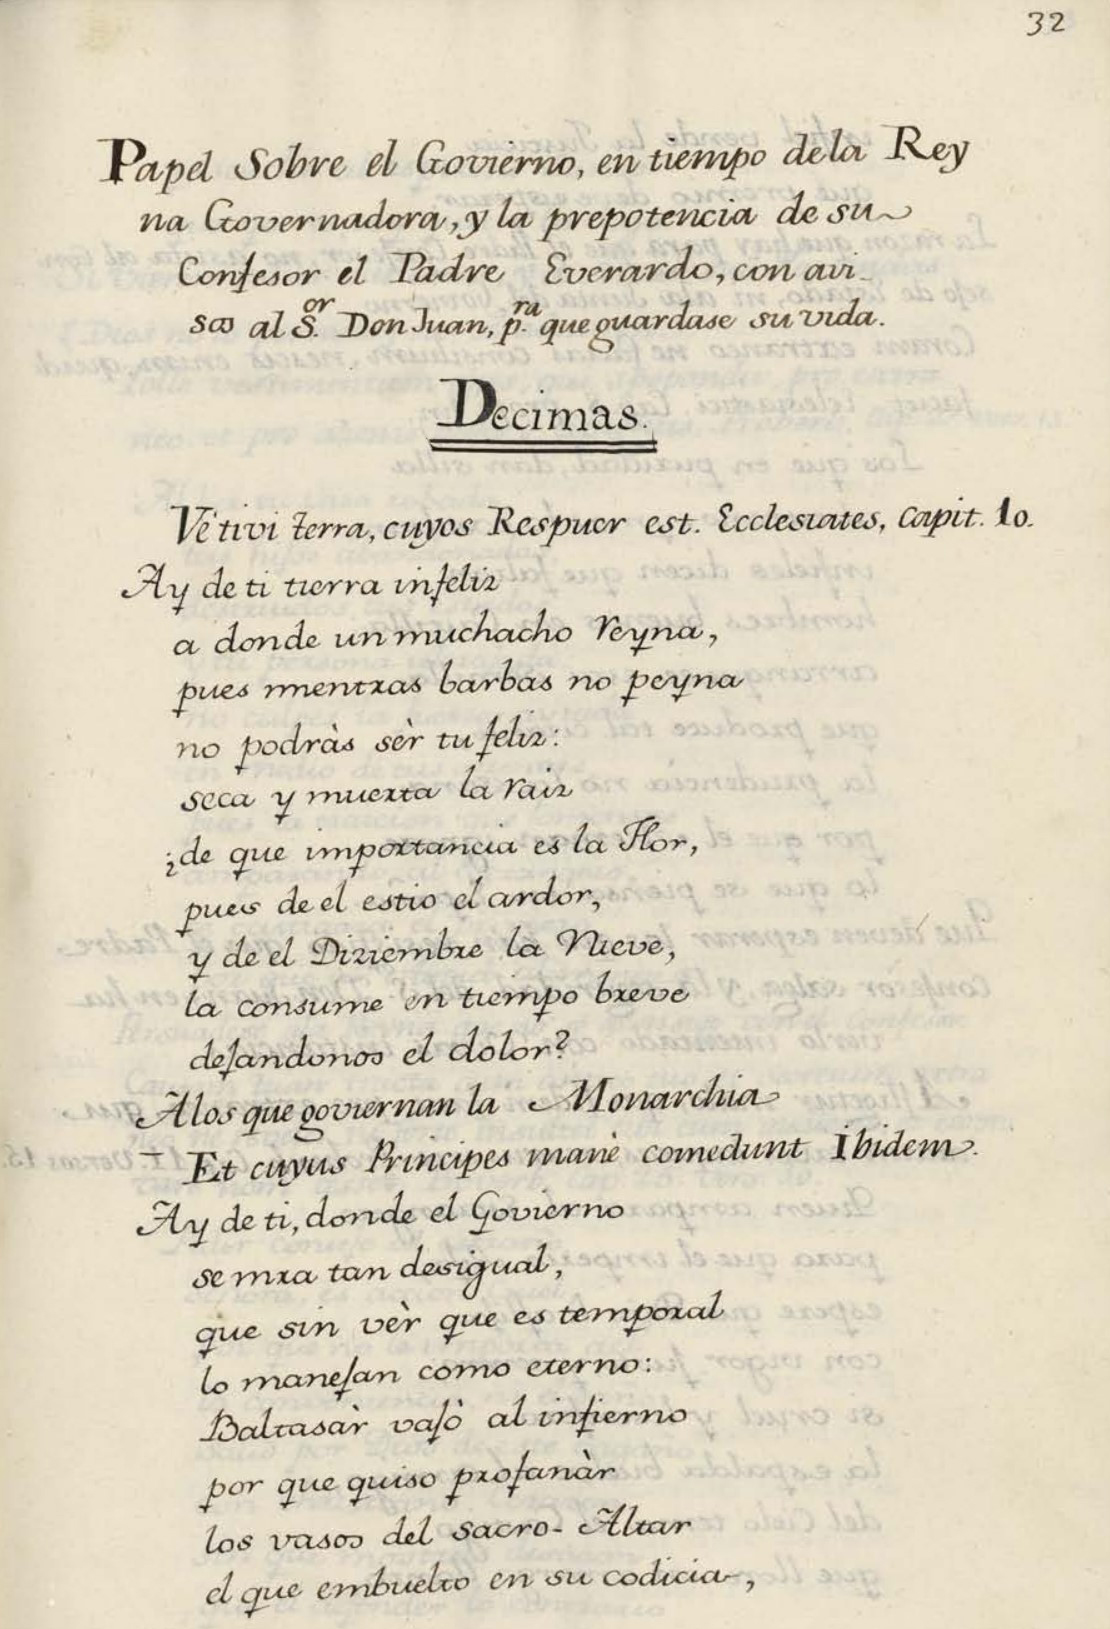 32
Papel Sobre el Govierno, en tiempo de la Rey
na Governadora, y la prepotencia de su
Confesor el Padre Everardo, con avi_
sos al S.or Don Juan, p.ra que guardase su vida.
Decimas.
Vé tivi terra, cuyos Respuer est. Ecclesiates, Capit. 10.
Ay de ti tierra infeliz
a donde un muchacho reyna,
pues mentras barbas no peyna
no podràs sèr tu feliz:
seca y muerta la raiz
¿de que importancia es la Flor,
pues de el estio el ardor,
y de el Diziembre la Nieve,
la consume en tiempo breve
dejandonos el dolor?
A los que goviernan la Monarchia
Et cuyus Principes manè comedunt Ibidem.
Ay de ti, donde el Govierno
se mra tan desigual,
que sin vèr que es temporal
lo manejan como eterno:
Baltasàr vajò al infierno
por que quiso profanàr
los vasos del sacro- Altar
el que embuelto en su codicia,